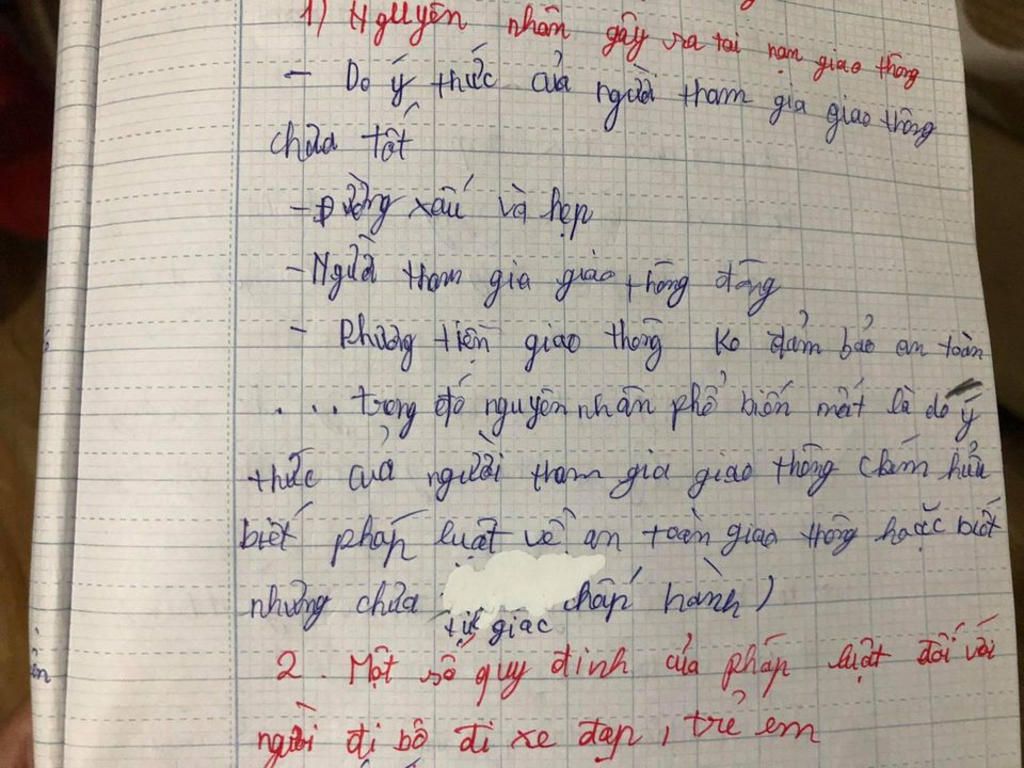 1) Nguyên nhân gây ra tai nạn giao thông
- Do ý thức của người tham gia giao thông
chưa tốt
- Đường xấu và hẹp
- Người tham gia giao thông đông
- Phương tiện giao thông ko đảm bảo an toàn
... trong đó nguyên nhân phổ biến nhất là do ý
thức của người tham gia giao thông (kém hiểu
biết pháp luật về an toàn giao thông hoặc biết
nhưng chưa tự giác chấp hành)
2. Một số quy định của pháp luật đối với
người đi bộ đi xe đạp, trẻ em